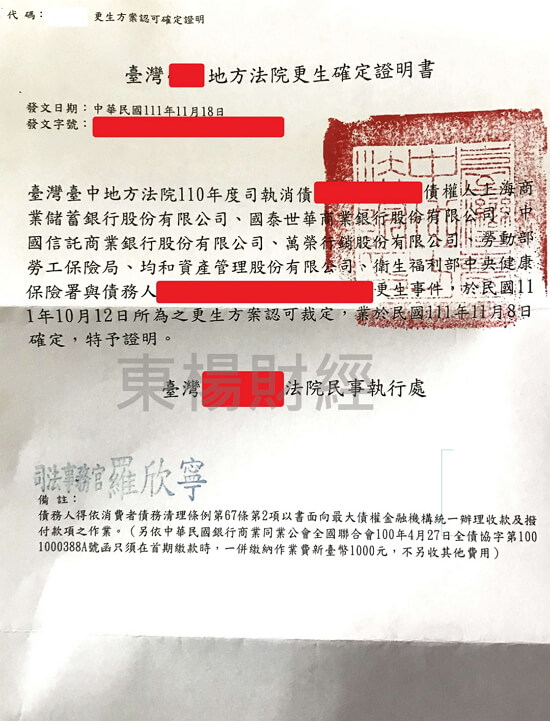 代碼： 更生方案認可確定證明
臺灣 地方法院更生確定證明書
發文日期：中華民國111年11月18日
發文字號：
臺灣臺中地方法院110年度司執消債 債權人上海商
業儲蓄銀行股份有限公司、國泰世華商業銀行股份有限公司、中
國信託商業銀行股份有限公司、萬榮行銷股份有限公司、勞動部
勞工保險局、均和資產管理股份有限公司、衛生福利部中央健康
保險署與債務人 更生事件，於民國11
1年10月12日所為之更生方案認可裁定，業於民國111年11月8日
確定，特予證明。
東楊財經
臺灣 法院民事執行處
司法事務官羅欣寧
備註：
債務人得依消費者債務清理條例第67條第2項以書面向最大債權金融機構統一辦理收款及撥
付款項之作業。（另依中華民國銀行商業同業公會全國聯合會100年4月27日全債協字第100
1000388A號函只須在首期繳款時，一併繳納作業費新臺幣1000元，不另收其他費用）